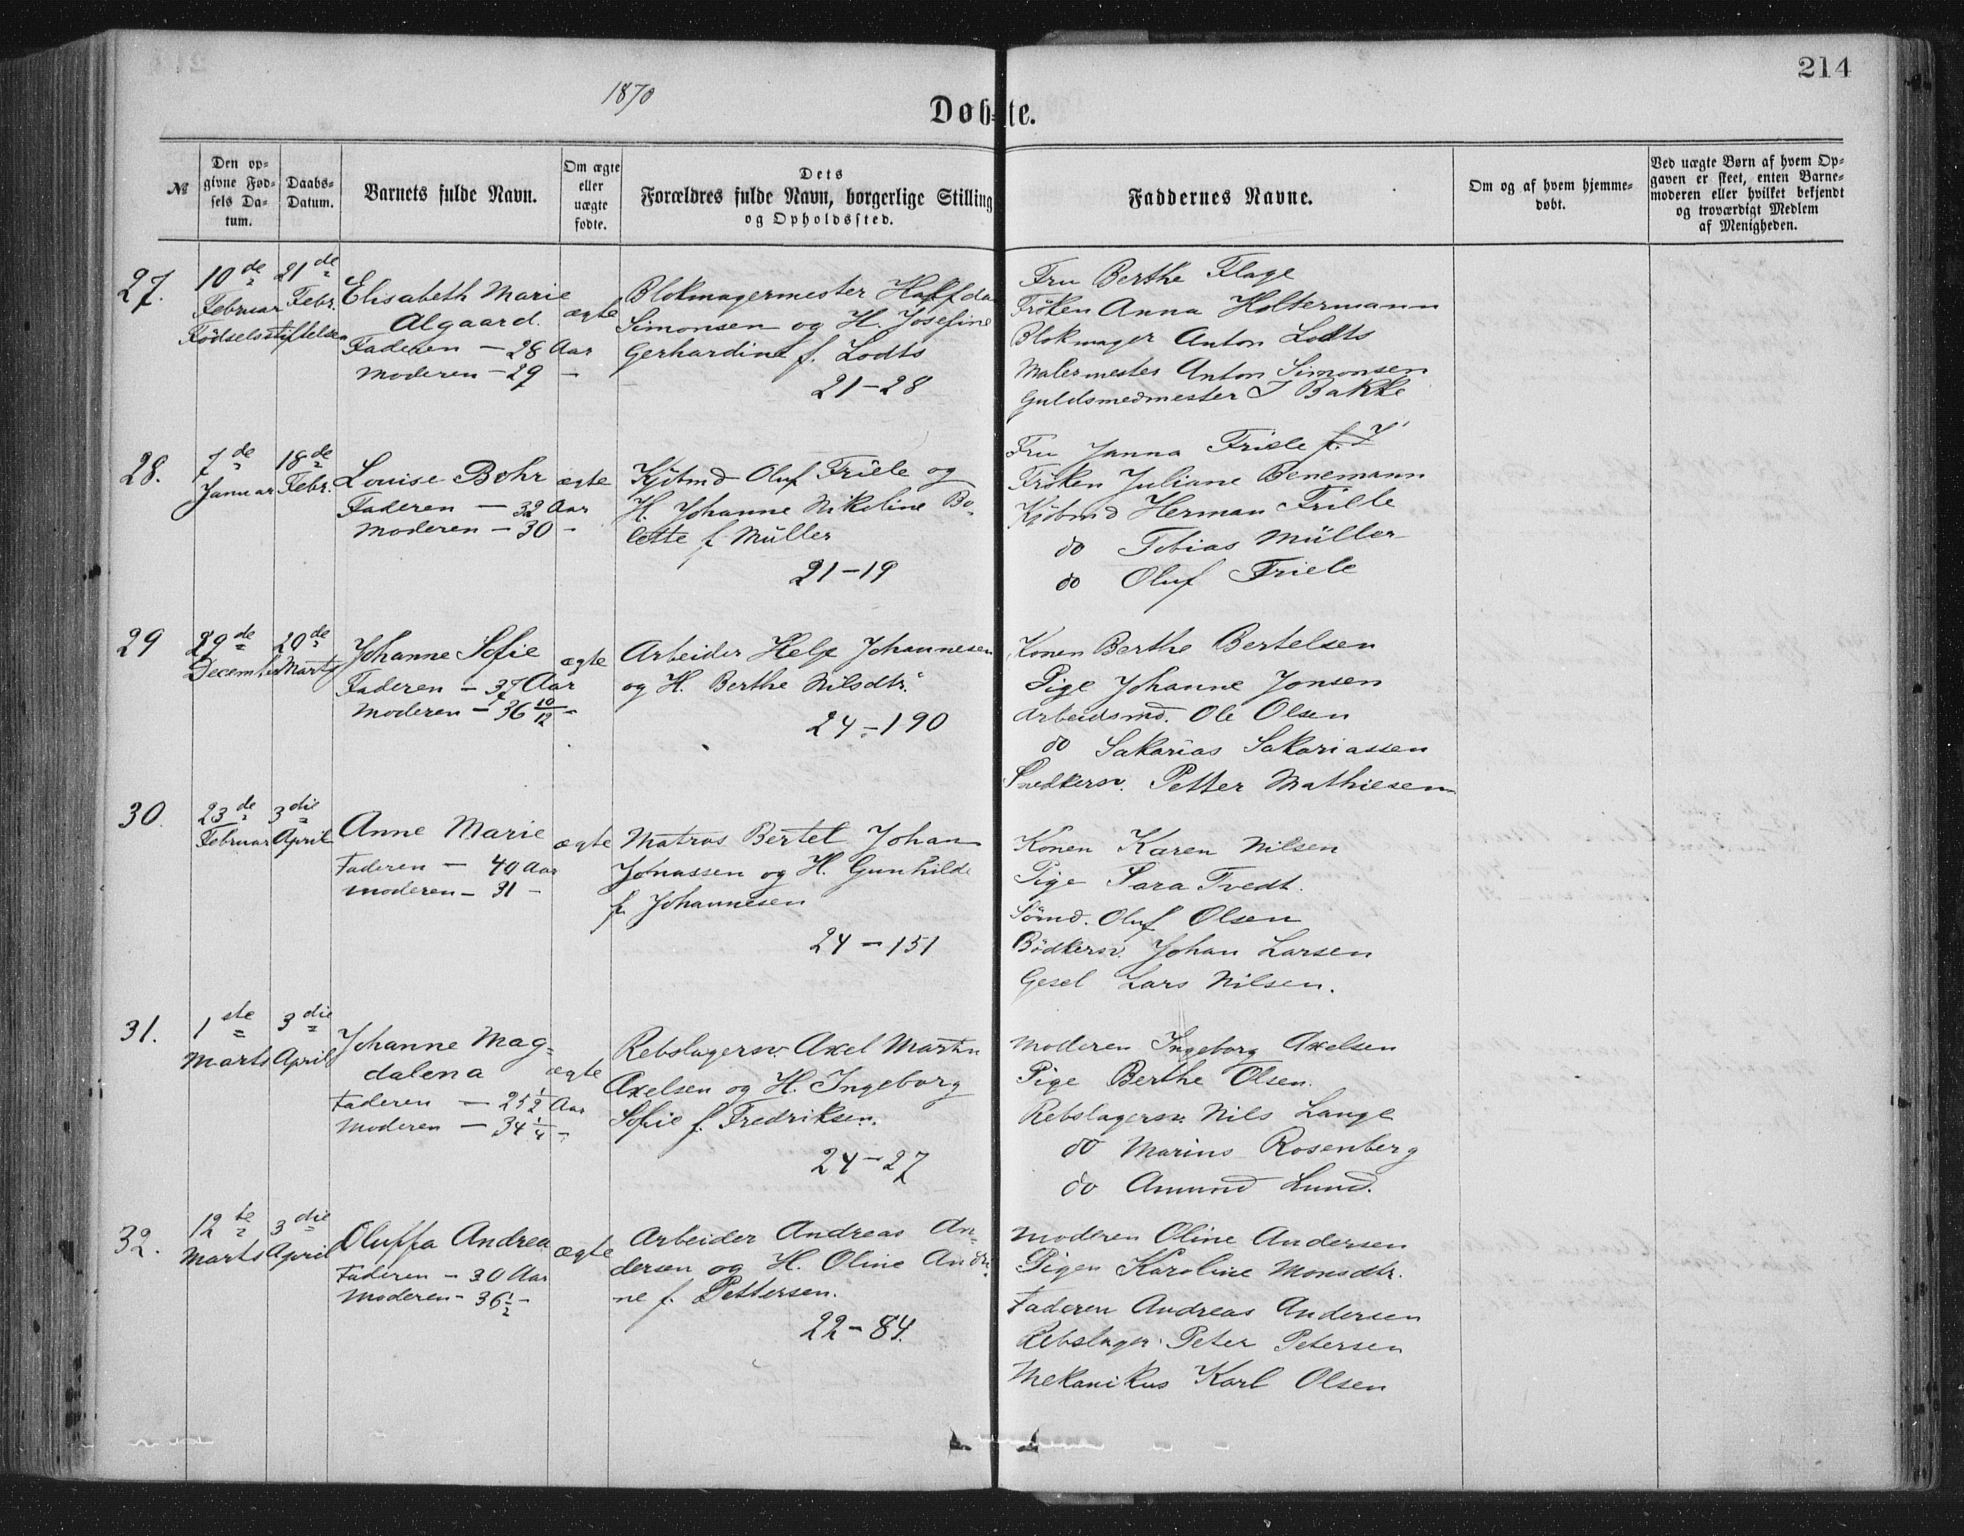 214
1870
Døbte.
№
Den op-
givne Fød-
sels Da-
tum.
Daabs-
Datum.
Barnets fulde Navn.
Om ægte
eller
uægte
fødte.
Dets
Forældres fulde Navn, borgerlige Stilling
og Opholdssted.
Faddernes Navne.
Om og af hvem hjemme-
døbt.
Ved uægte Børn af hvem Op-
gaven er skeet, enten Barne-
moderen eller hvilket bekjendt
og troværdigt Medlem
af Menigheden.
27.
10de
Februar
Fødselsstiftelsen
21de
Febr.
Elisabeth Marie
Algaard.
Faderen — 28 Aar
Moderen — 29 —
ægte
Blokmagermester Halfdan
Simonsen og H. Josefine
Gerhardine f. Lodts
21—28
Fru Berthe Flage
Frøken Anna Holtermann
Blokmager Anton Lodts
Malermester Anton Simonsen
Guldsmedmester J Bakke
28.
7de
Januar
18de
Febr.
Louise Bohr
Faderen — 32 Aar
Moderen — 30 —
ægte
Kjøbmd Oluf Friele og
H. Johanne Nikoline Bo-
lette f. Müller
21—19
Fru Janna Friele
Frøken Juliane Benemann
Kjøbmd Herman Friele
do Tobias Müller
do Oluf Friele
29
29de
December
20de
Marts
Johanne Sofie
Faderen — 37 Aar
Moderen — 36 10/12 —
ægte
Arbeider Helje Johannesen
og H. Berthe Nilsdtr.
24—190
Konen Berthe Bertelsen
Pige Johanne Jonsen
Arbeidsmd. Ole Olsen
do Sakarias Sakariassen
Snedkersv. Petter Mathiesen
30.
23de
Februar
3die
April
Anne Marie
Faderen — 40 Aar
Moderen — 31 —
ægte
Matros Bertel Johan
Jonassen og H. Gunhilde
f. Johannesen
24—151
Konen Karen Nilsen
Pige Sara Tvedt.
Sømd. Oluf Olsen
Bødkersv. Johan Larsen
Gesel Lars Nilsen.
31.
1ste
Marts
3die
April
Johanne Mag-
dalena
Faderen — 25 1/2 Aar
Moderen — 34 1/4 —
ægte
Rebslagersv. Axel Martin
Axelsen og H. Ingeborg
Sofie f. Fredriksen.
24—27
Moderen Ingeborg Axelsen
Pige Berthe Olsen.
Rebslagersv. Nils Lange
do Marius Rosenberg
do Amund Lund.
32.
12te
Marts
3die
April
Oluffa Andrea
Faderen — 30 Aar
Moderen — 36 1/2 —
ægte
Arbeider Andreas An-
dersen og H. Oline Andri-
ne f. Pettersen.
22—84.
Moderen Oline Andersen
Pigen Karoline Monsdtr.
Faderen Andreas Andersen
Rebslager Peter Petersen
Mekanikus Karl Olsen